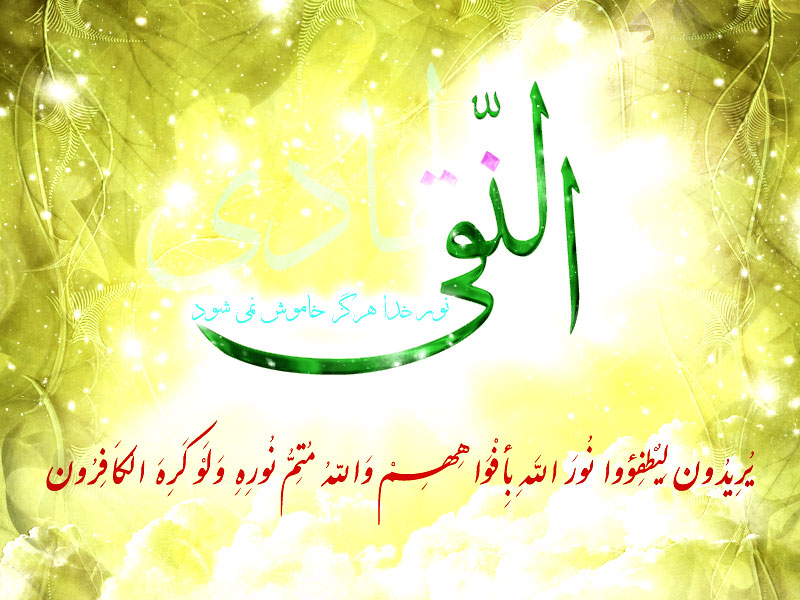 الهادی
النّقی
نور خدا هرگز خاموش نمی شود
يُرِيدُون لِيُطْفِؤُوا نُورَ اللَهِ بِأَفْوَاهِهِمْ وَاللهُ مُتِمُّ نُورِهِ وَلَوْ كَرِهَ الْكَافِرُون